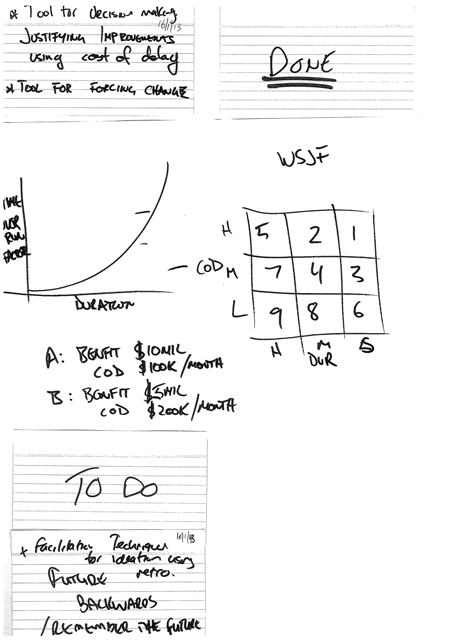 * Tool for decision making
16/1/13
JUSTIFYING IMPROVEMENTS
using cost of delay
* TOOL FOR FORCING CHANGE
DONE
WSJF
DURATION
COD
H 5 2 1
M 7 4 3
L 9 8 6
H M S
DUR
A: BENEFIT $10MIL
COD $100K/MONTH
B: BENEFIT $5MIL
COD $200K/MONTH
TO DO
* Facilitation Techniques
for ideation using
FUTURE retro.
BACKWARDS
/REMEMBER THE FUTURE